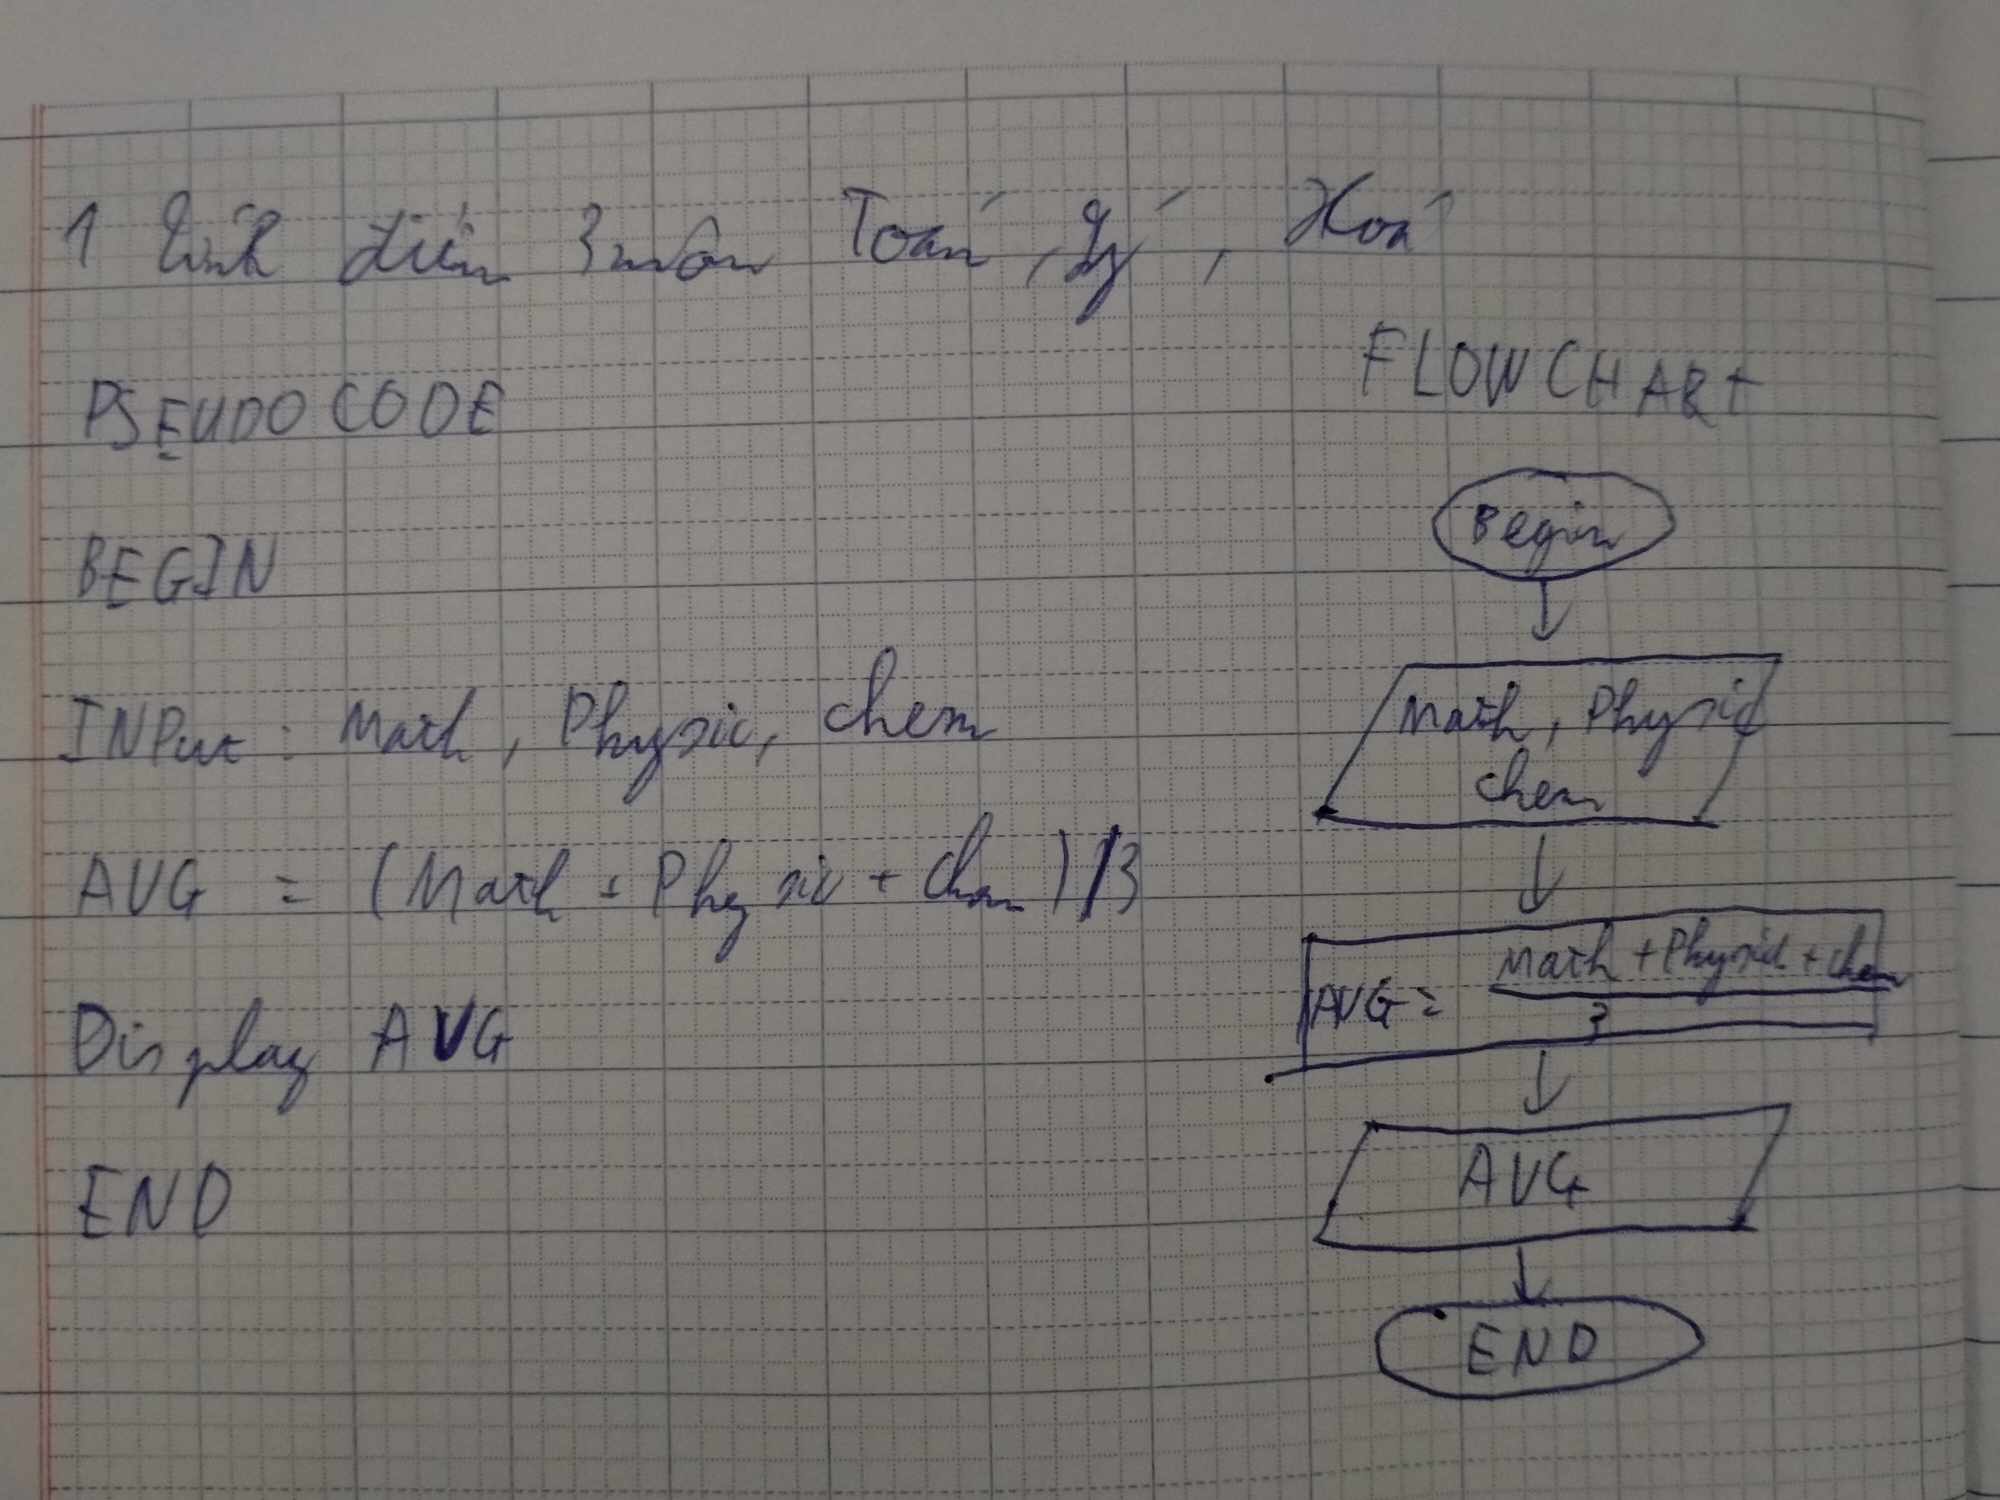 1 Tính điểm 3 môn Toán, Lý, Hoá
PSEUDO CODE
BEGIN
INPut: Math, Physic, chem
AVG = (Math + Physic + chem)/3
Display AVG
END
FLOWCHART
Begin
Math, Physic
chem
AVG = Math + Physic + chem
3
AVG
END